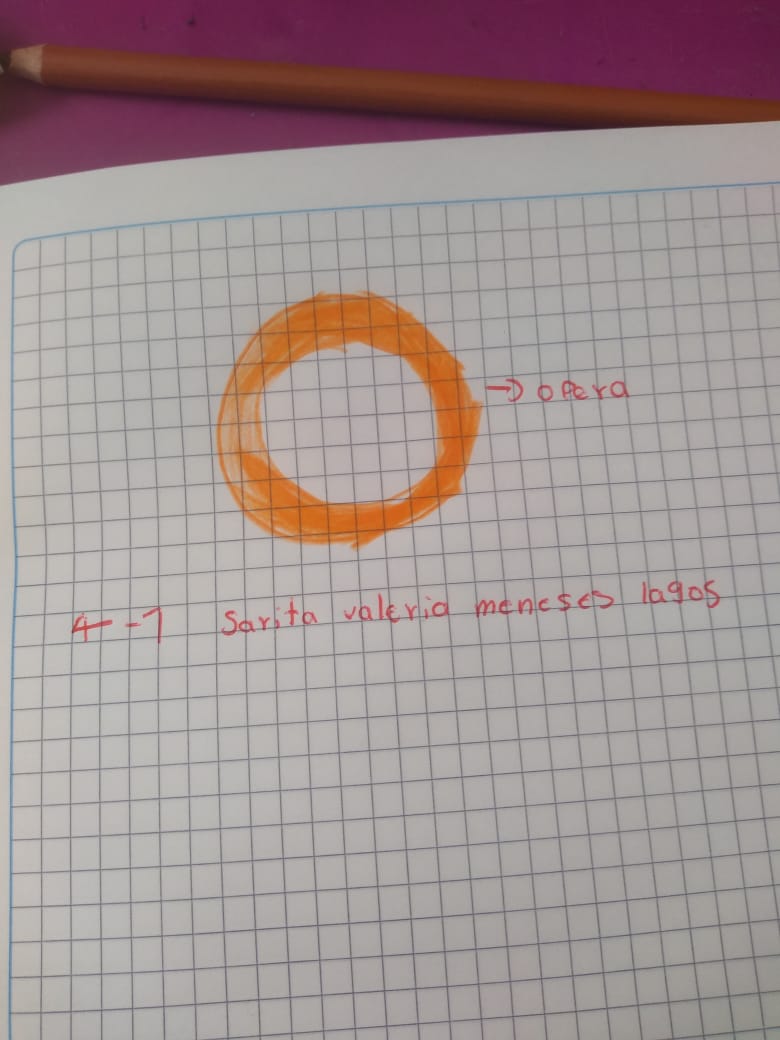 → opera
4-1 Sarita valeria meneses lagos